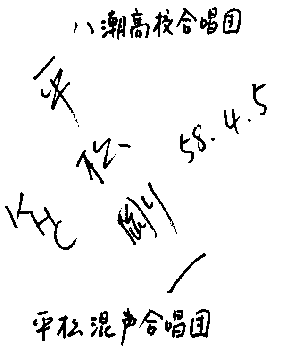 八潮高校合唱団
平松剛一
58.4.5
KHC
平松混声合唱団